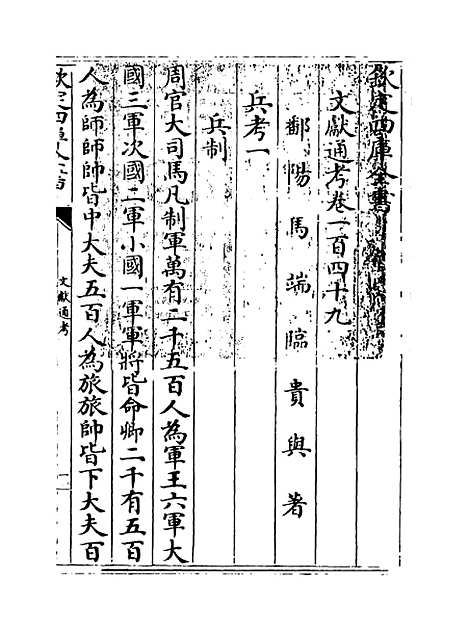 欽定四庫全書
文獻通考卷一百四十九
鄱陽馬端臨貴與著
兵考一
兵制
周官大司馬凡制軍萬有二千五百人為軍王六軍大
國三軍次國二軍小國一軍軍將皆命卿二千有五百
人為師師帥皆中大夫五百人為旅旅帥皆下大夫百
欽定四庫全書
文獻通考
一